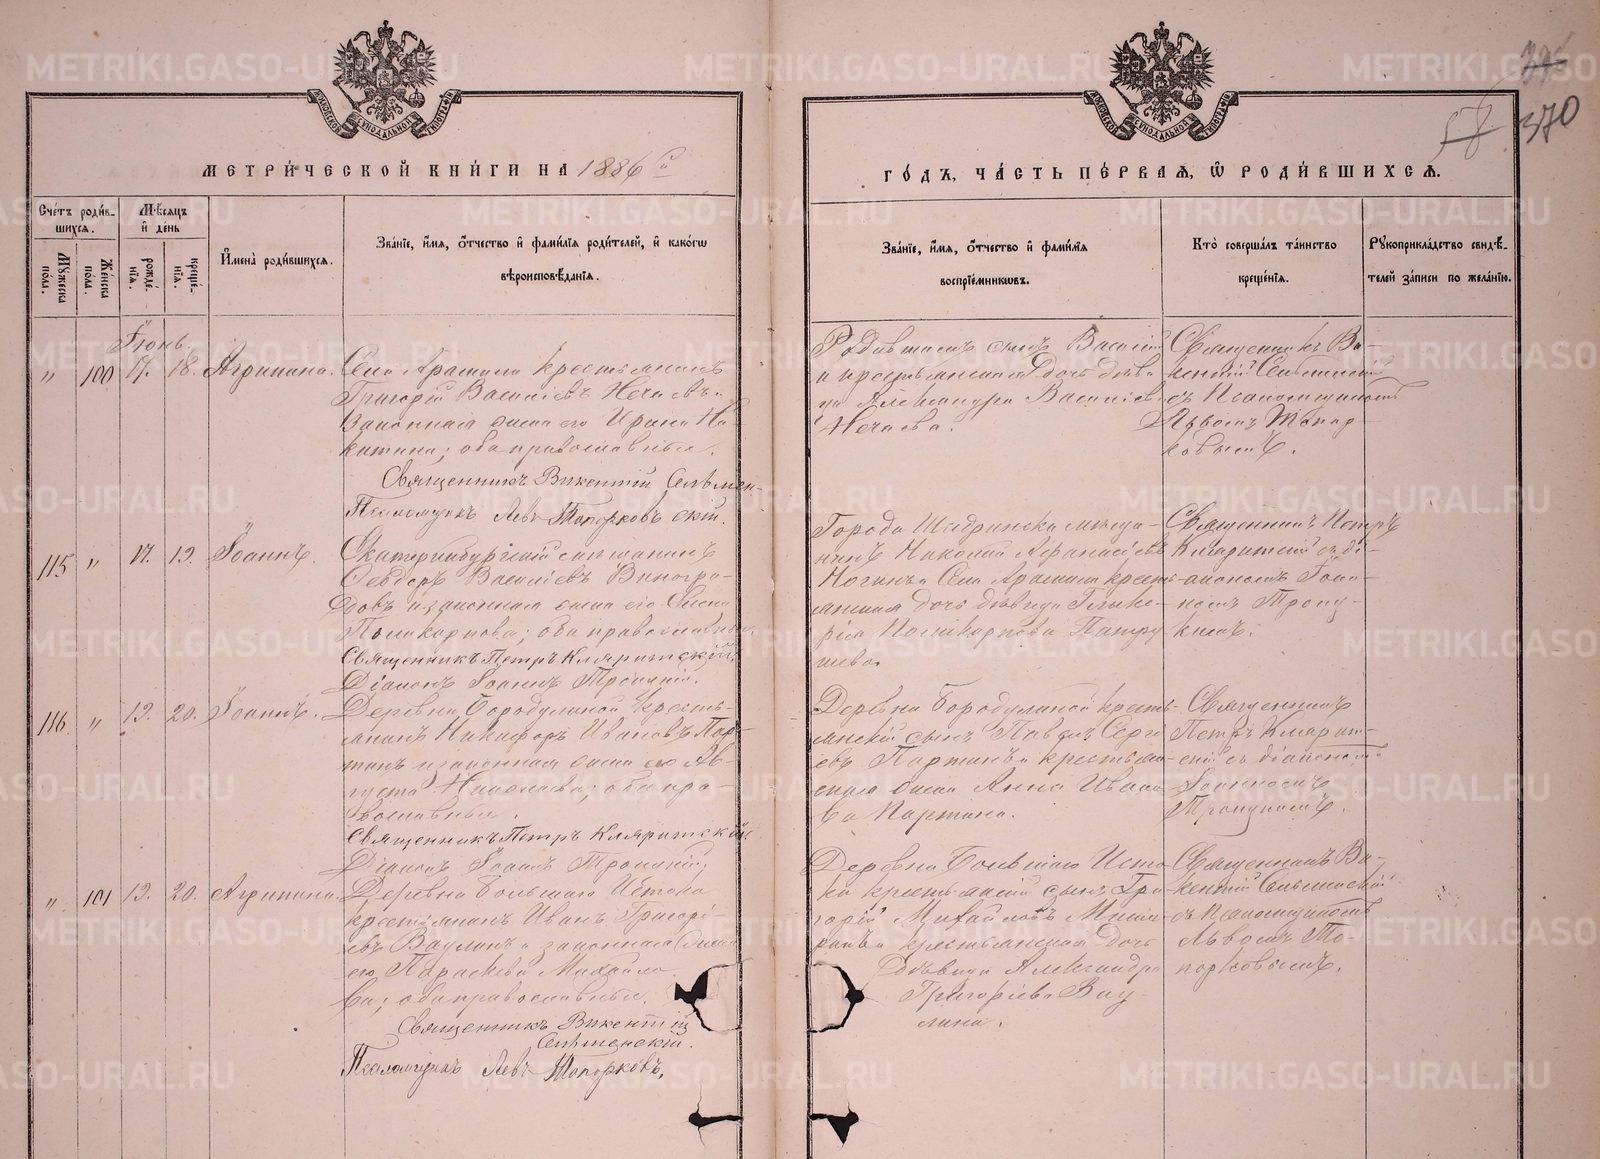 МЕТРИ́ЧЕСКОЙ КНИ́ГИ НА 1886 й
ГО́ДЪ, ЧА́СТЬ ПЕ́РВАѦ, Ѽ РОДИ́ВШИХСѦ.
370
58
Сче́тъ роди́вшихсѧ.
Мꙋжеска пола.
Женска пола.
Мѣ́сѧцъ и де́нь
рожде́нїѧ.
креще́нїѧ.
И҆мена̀ роди́вшихсѧ.
Зва́нїе, и҆́мѧ, о҆́тчество и҆ фами́лїѧ роди́телей, и҆ како́гѡ
вѣроисповѣ́данїѧ.
Зва́нїе, и҆́мѧ, о҆́тчество и҆ фами́лїѧ
воспрїе́мникѡвъ.
Кто̀ соверша́лъ та́инство
креще́нїѧ.
Рꙋкоприкла́дство свидѣ́-
телей за́писи по жела́нїю.
Іюнь.
" 100 17. 18. Агрипина.
Села Арамиля крестьянинъ
Григорій Василіевъ Нечаевъ и
законная жена его Ирина Ни-
китина; оба православные.
Священникъ Викентій Сельмен-
Псаломщикъ Левъ Топорковъ скій.
Родившаго сынъ Василій
и крестьянская дочь дѣви
ца Александра Василіев
Нечаева.
Священникъ Ви-
кентій Сельменскій
съ Псаломщикомъ
Львомъ Топор-
ковымъ.
115 " 17. 19. Іоаннъ.
Екатеринбургскій мѣщанинъ
Ѳеодоръ Василіевъ Виногра-
довъ и законная жена его
Поликарпова; оба православные.
Священникъ Петръ Кляритскій;
Діаконъ Іоаннъ Троицкій.
Города Шадринска мѣща-
нинъ Николай Афанасіевъ
Ногинъ и Села Арамиля кресть-
янская дочь дѣвица Глике-
рія Поликарпова Патру
шева.
Священникъ Петръ
Кляритскій съ ді-
акономъ Іоан-
номъ Троиц-
кимъ.
116. " 19. 20. Іоаннъ.
Деревни Бородулиной кресть-
янинъ Никифоръ Ивановъ Пар-
тинъ и законная жена его Ав-
густа Николаева; оба пра-
вославные.
Священникъ Петръ Кляритскій;
Діаконъ Іоаннъ Троицкій;
Деревни Бородулиной кресть-
янскій сынъ Павелъ Серги
евъ Партинъ и крестьян-
ская жена Анна Ивано
ва Партина.
Священникъ
Петръ Клярит-
скій съ діакономъ
Іоанномъ
Троицкимъ.
" 101 19. 20. Агрипина.
Деревни Большаго Истока
крестьянинъ Иванъ Григорі
евъ Ваулинъ и законная жена
его Параскева Михайло-
ва; оба православные.
Священникъ Викентій
Сельменскій.
Псаломщикъ Левъ Топорковъ.
Деревни Большаго Исто
ка крестьянскій сынъ Гри
горій Михайловъ
и крестьянская дочь
дѣвица Александра
Григоріева Вау
лина.
Священникъ Ви-
кентій Сельменскій
съ Псаломщикомъ
Львомъ То-
порковымъ.
METRIKI.GASO-URAL.RU